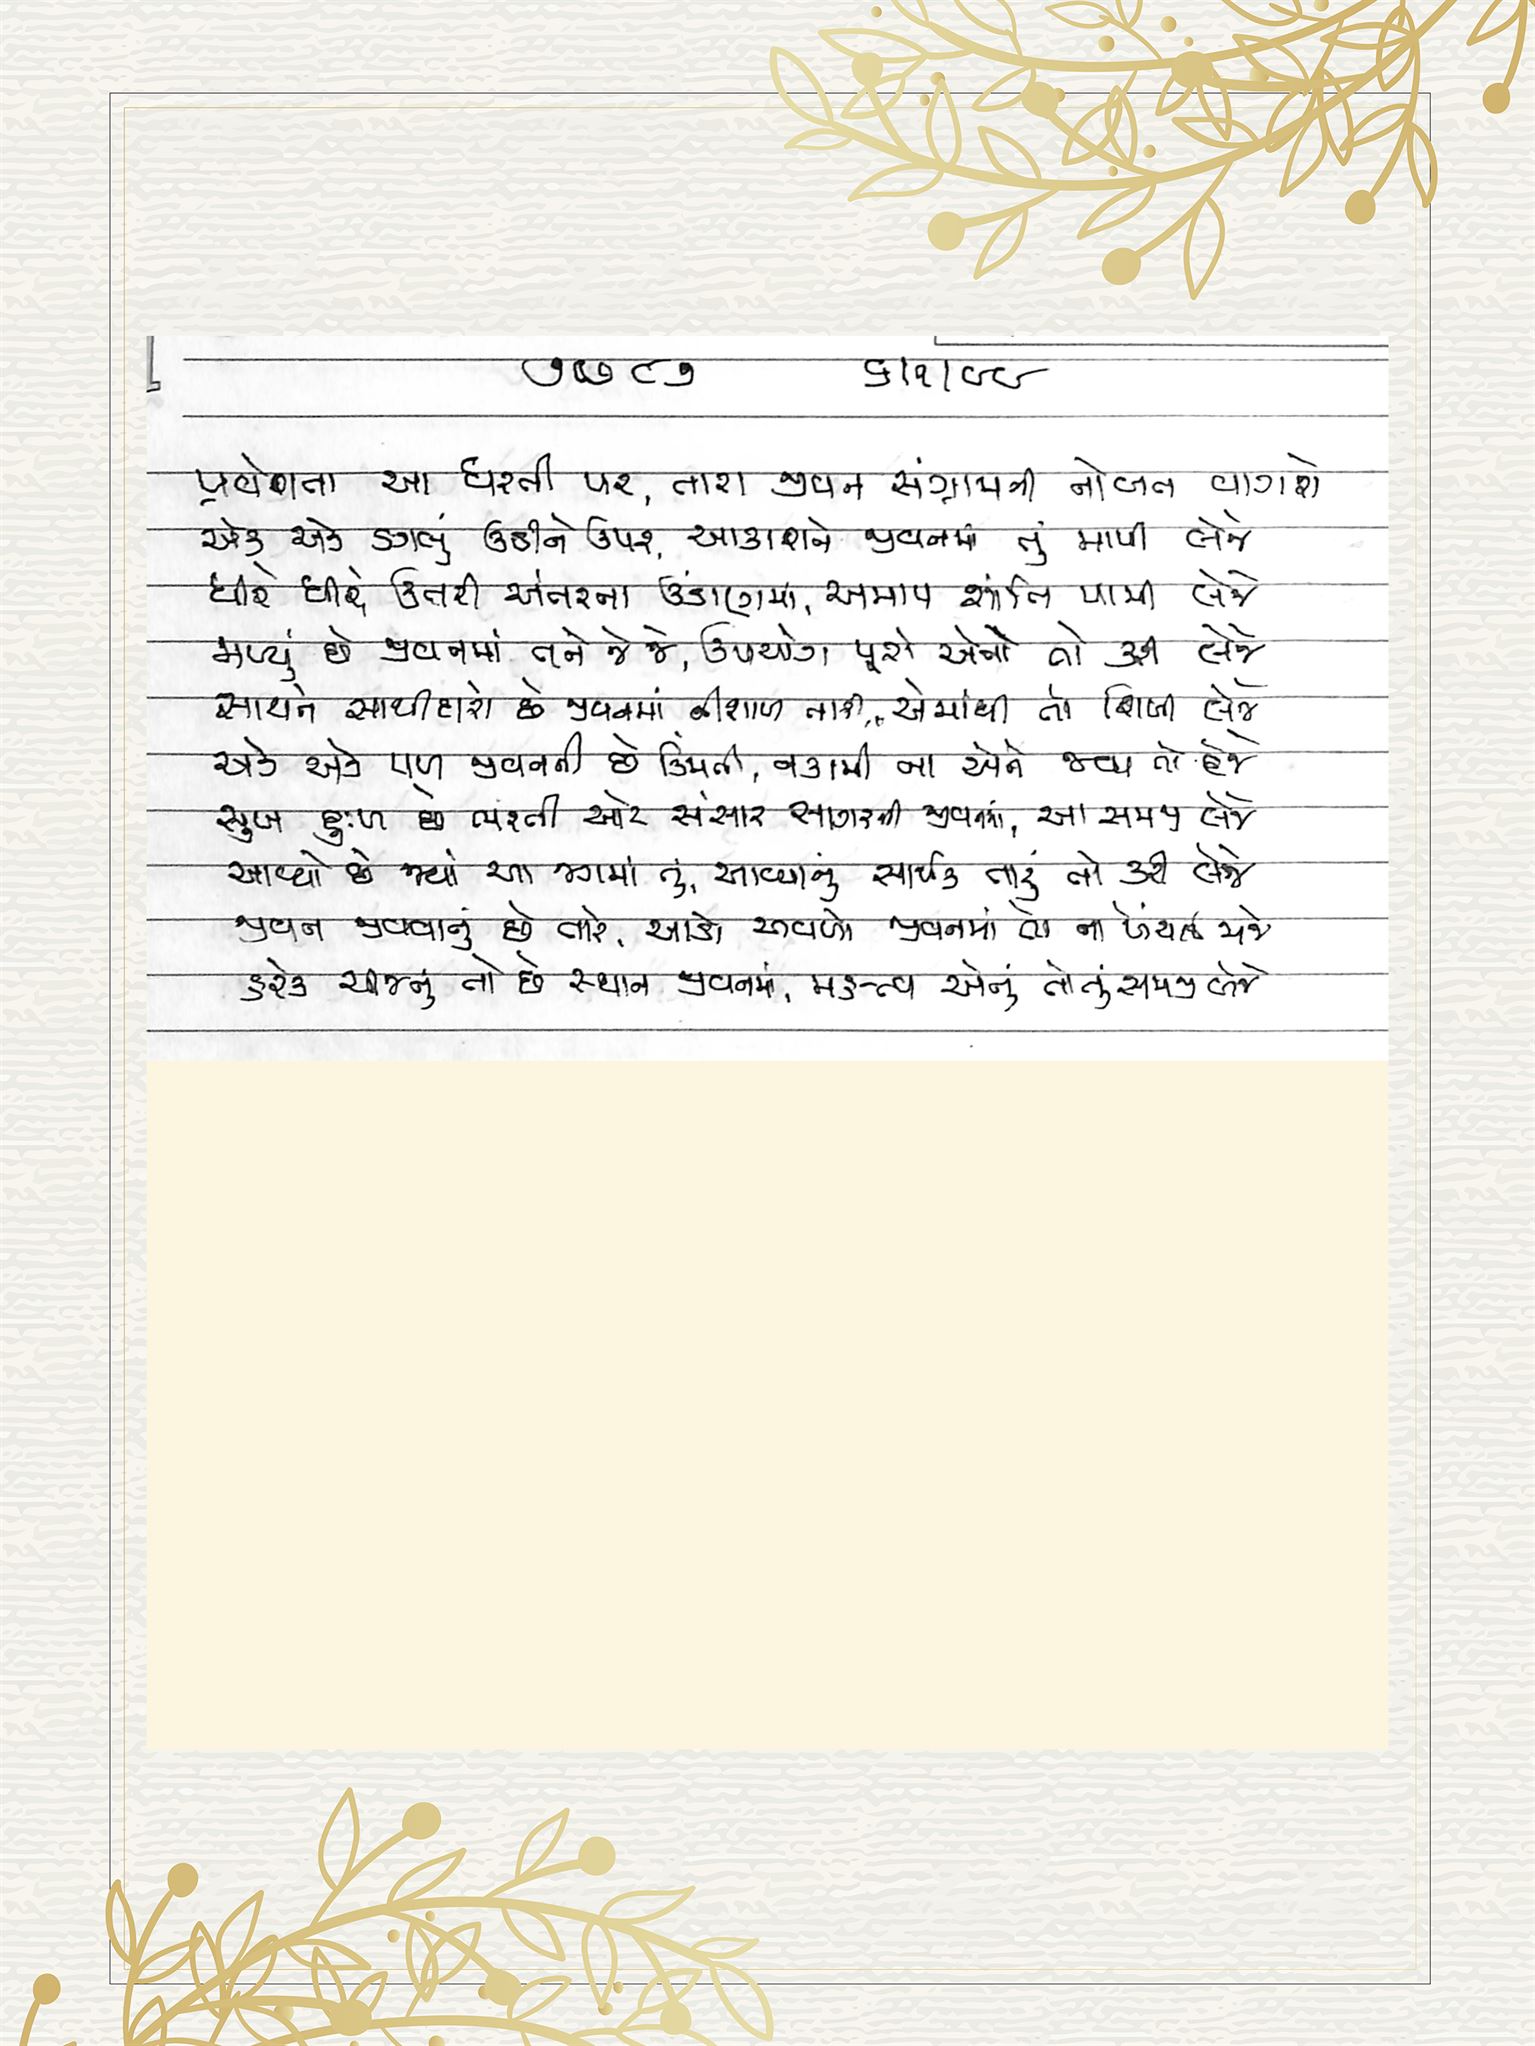 પ્રવેશતા આ ધરતી પર, તારા જીવન સંગ્રામની નોબત વાગશે
એક એક ડગલું ઉઠીને ઉપર, આકાશને જીવનમાં તું માપી લેજે
ધીરે ધીરે ઉતરી અંતરના ઉંડાણમાં, અમાપ શાંતિ પામી લેજે
મળ્યું છે જીવનમાં તને જે જે, ઉપયોગ પૂરો એનો તો કરી લેજે
સાથને સાથીદારો છે જીવનમાં નીશાળ તારી, એમાંથી તો શિખી લેજે
એક એક પળ જીવનની છે કિંમતી, નકામી ના એને જવા તો દેજે
સુખ દુઃખ છે ભરતી ઓટ સંસાર સાગરની જીવનમાં, આ સમજી લેજે
આવ્યો છે જ્યાં આ જગમાં તું, આવ્યાનું સાર્થક તારું તો કરી લેજે
જીવન જીવવાનું છે તારે, આડો અવળો જીવનમાં તો ના ખેંચાઈ જાજે
દરેક ચીજનું તો છે સ્થાન જીવનમાં, મહત્ત્વ એનું તો તું સમજી લેજે